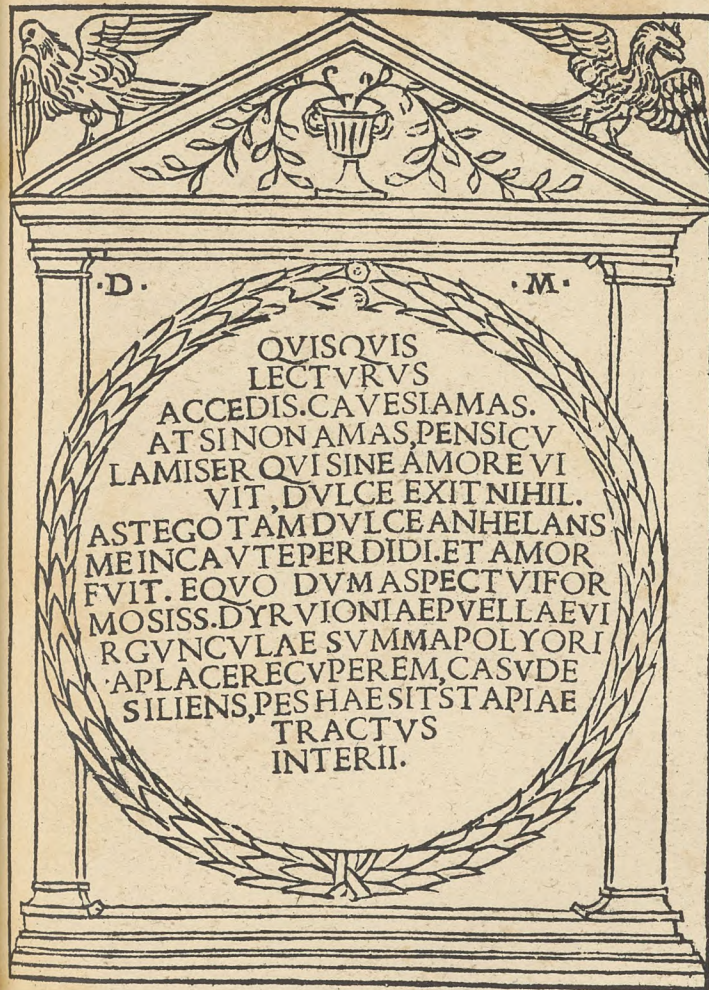 ·D· ·M·
QVISQVIS
LECTVRVS
ACCEDIS.CAVESIAMAS.
AT SI NON AMAS,PENSICV
LAMISER QVI SINE AMORE VI
VIT,DVLCE EXIT NIHIL.
ASTEGO TAM DVLCE ANHELANS
ME INCAVTE PERDIDI.ET AMOR
FVIT. EQVO DVM ASPECTVI FOR
MOSISS.DYRVIONIAE PVELLAE VI
RGVNCVLAE SVMMA POLYORI
·APLACERE CVPEREM, CASV DE
SILIENS,PES HAESIT STAPIAE
TRACTVS
INTERII.